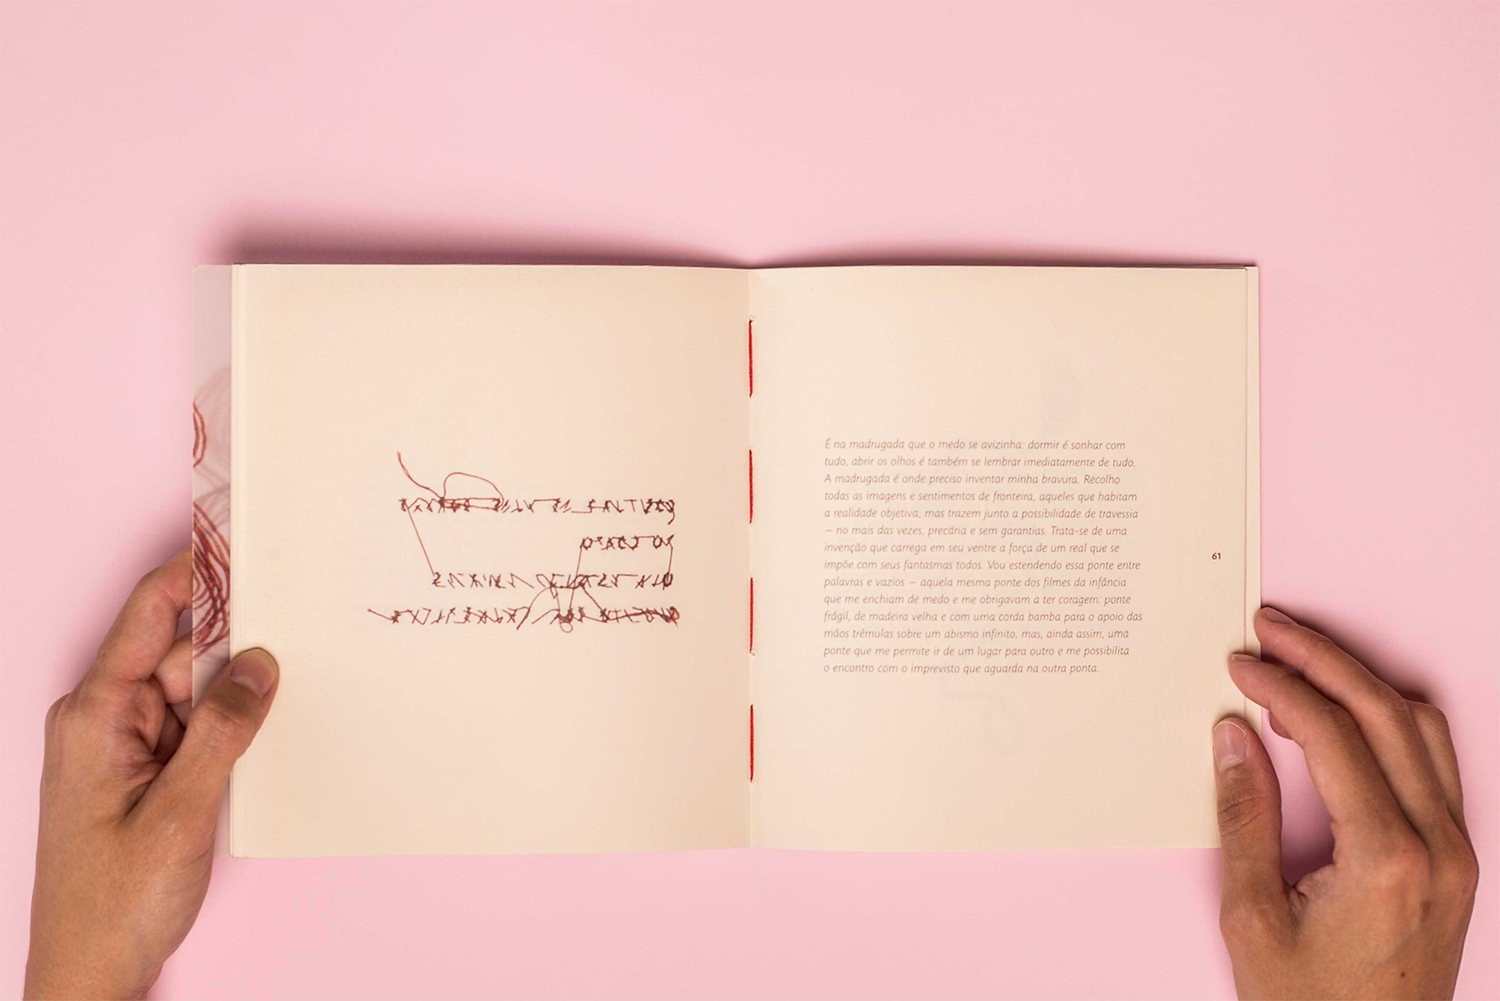 É na madrugada que o medo se avizinha: dormir é sonhar com
tudo, abrir os olhos é também se lembrar imediatamente de tudo.
A madrugada é onde preciso inventar minha bravura. Recolho
todas as imagens e sentimentos de fronteira, aqueles que habitam
a realidade objetiva, mas trazem junto a possibilidade de travessia
— no mais das vezes, precária e sem garantias. Trata-se de uma
invenção que carrega em seu ventre a força de um real que se
impõe com seus fantasmas todos. Vou estendendo essa ponte entre
palavras e vazios — aquela mesma ponte dos filmes da infância
que me enchiam de medo e me obrigavam a ter coragem: ponte
frágil, de madeira velha e com uma corda bamba para o apoio das
mãos trêmulas sobre um abismo infinito, mas, ainda assim, uma
ponte que me permite ir de um lugar para outro e me possibilita
o encontro com o imprevisto que aguarda na outra ponta.
61